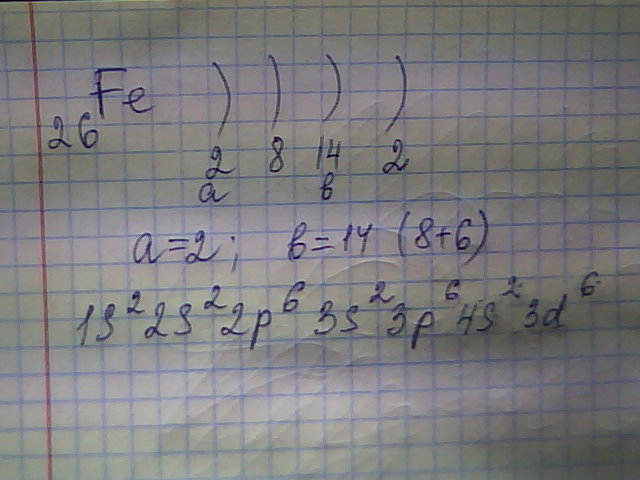 26Fe ) ) ) )
2 8 14 2
a в
a=2; в=14 (8+6)
1s²2s²2p⁶3s²3p⁶4s²3d⁶